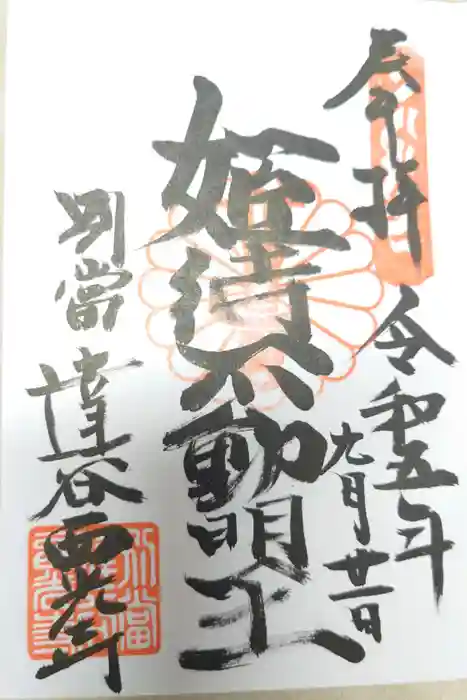 奉拝 令和五年
九月廿一日
姫待不動明王
別當 達谷西光寺